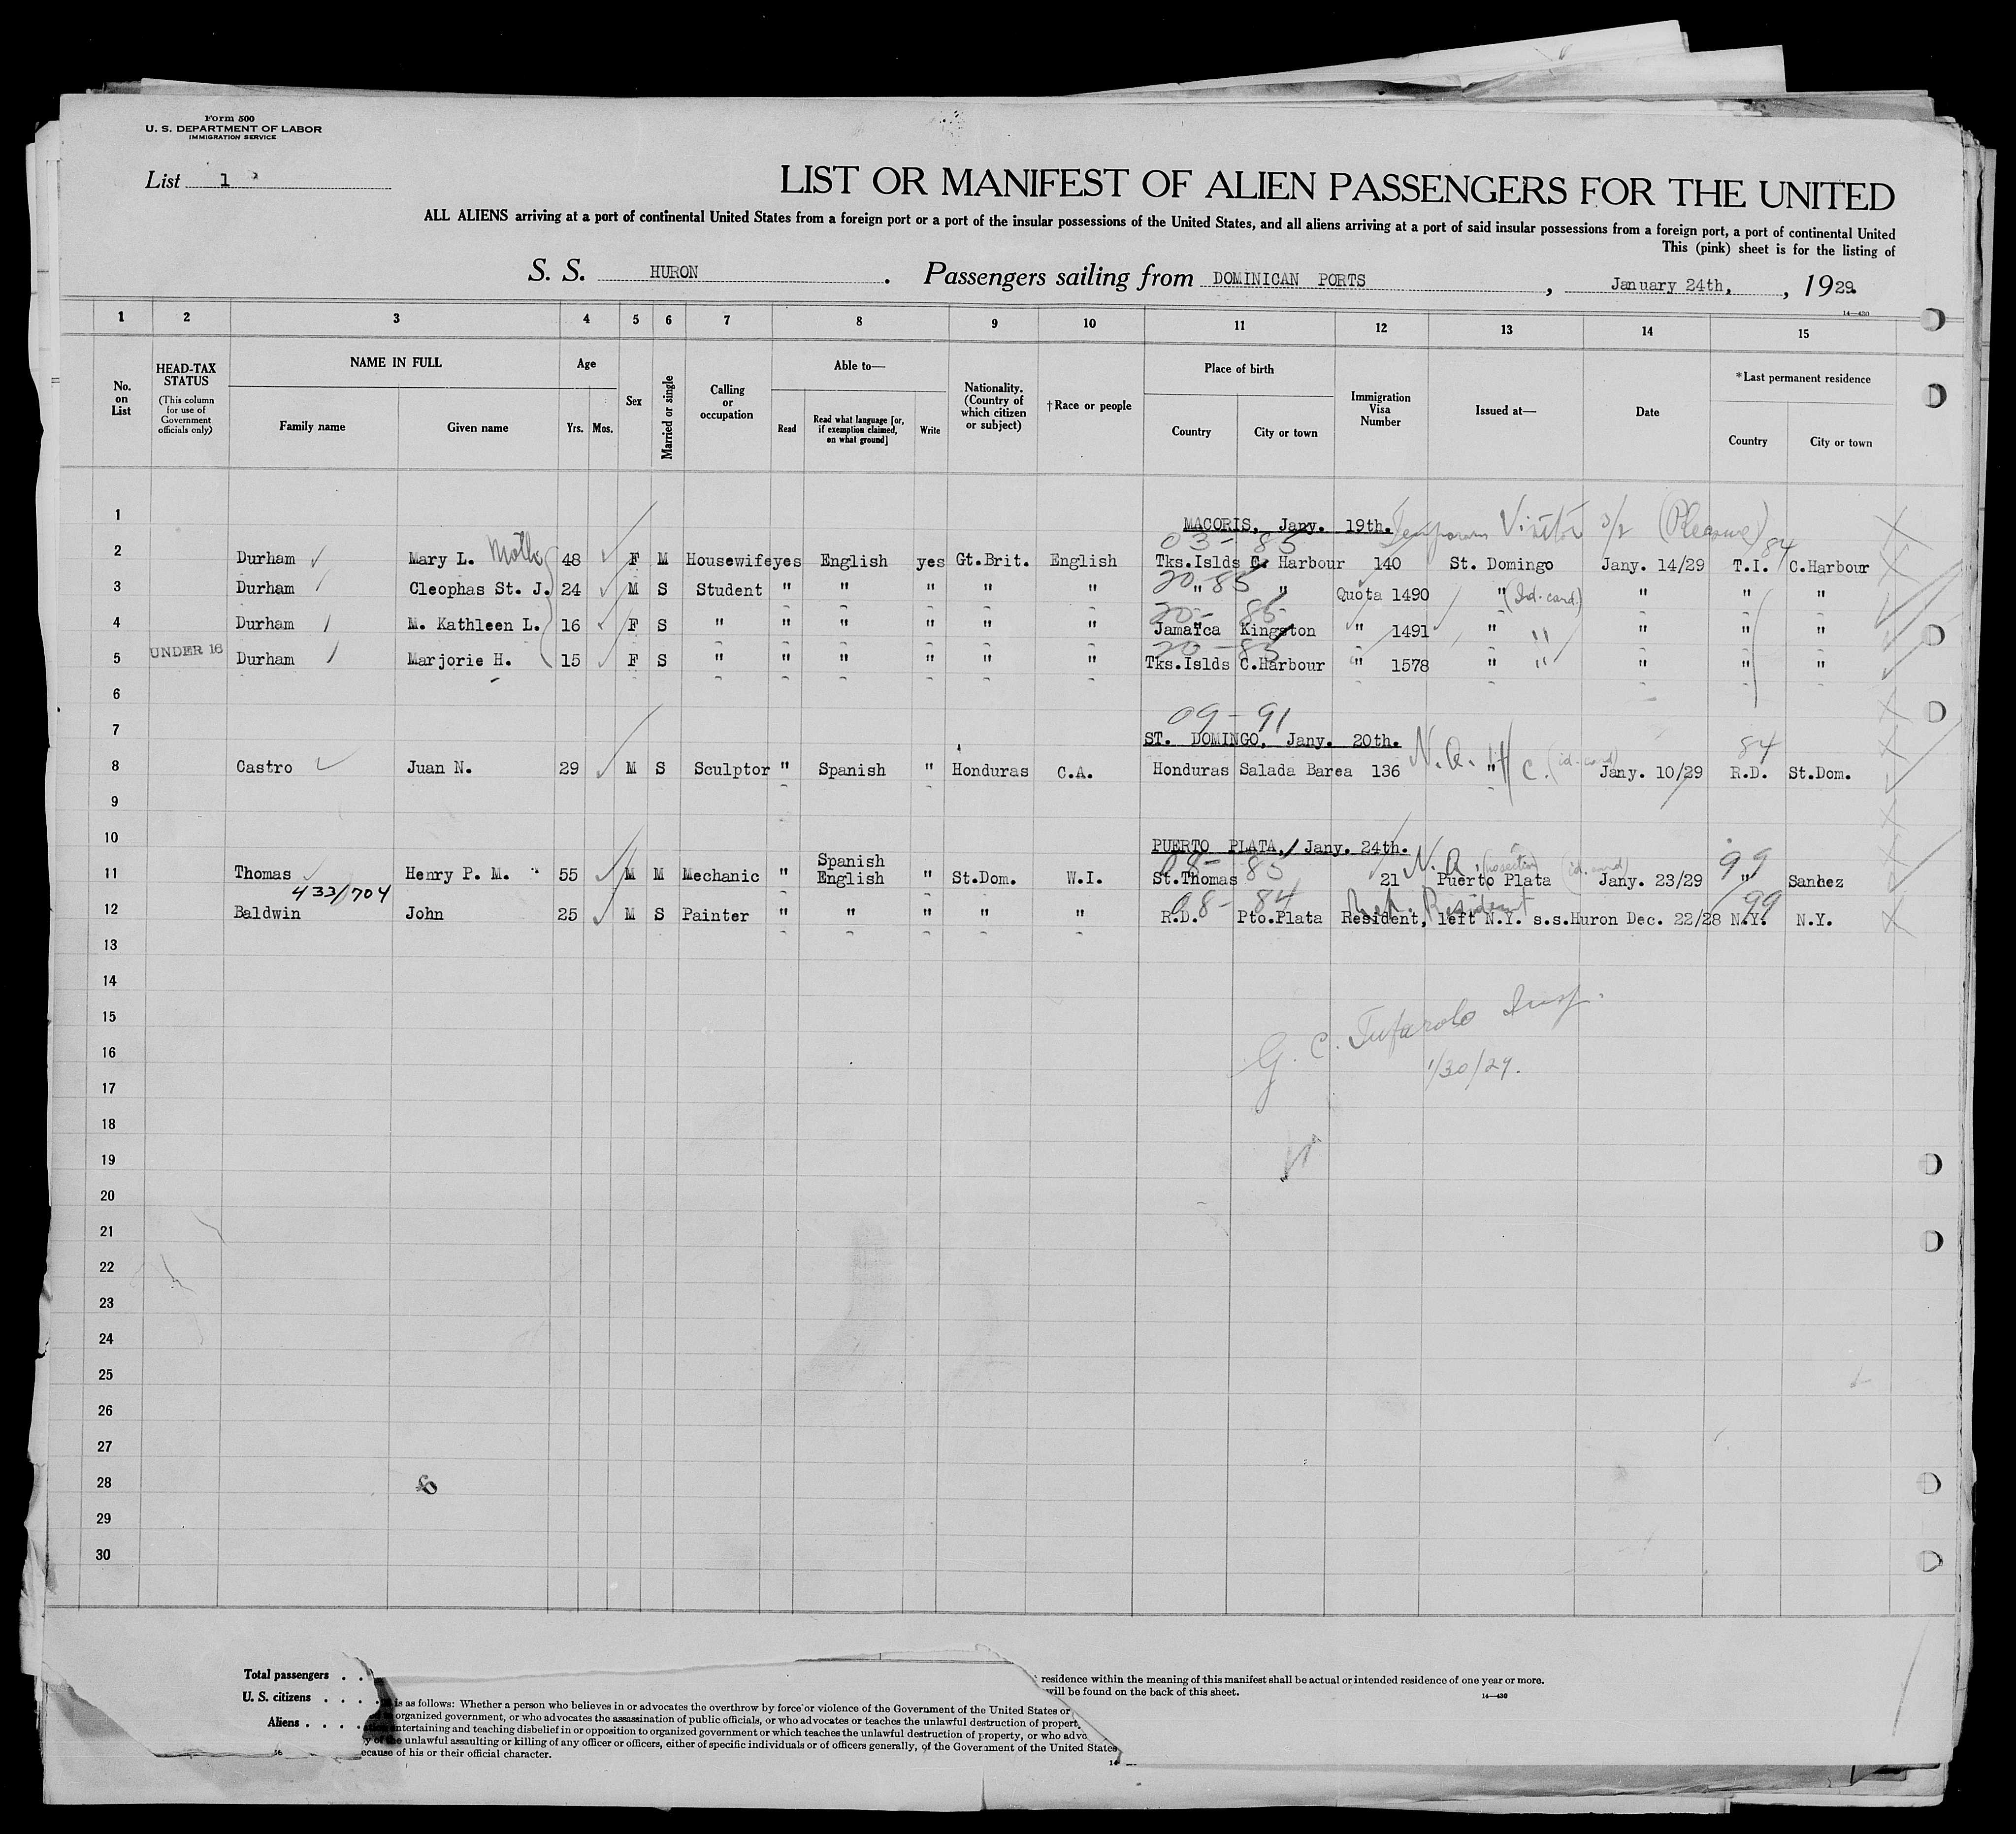 Form 500
U. S. DEPARTMENT OF LABOR
IMMIGRATION SERVICE
List 1
LIST OR MANIFEST OF ALIEN PASSENGERS FOR THE UNITED
ALL ALIENS arriving at a port of continental United States from a foreign port or a port of the insular possessions of the United States, and all aliens arriving at a port of said insular possessions from a foreign port, a port of continental United
This (pink) sheet is for the listing of
S. S. HURON. Passengers sailing from DOMINICAN PORTS, January 24th, , 1929.
14—430
1 2 3 4 5 6 7 8 9 10 11 12 13 14 15
No. on List
HEAD-TAX STATUS (This column for use of Government officials only)
NAME IN FULL Family name Given name
Age Yrs. Mos.
Sex
Married or single
Calling or occupation
Able to— Read Read what language [or, if exemption claimed, on what ground] Write
Nationality. (Country of which citizen or subject)
†Race or people
Place of birth Country City or town
Immigration Visa Number
Issued at—
Date
*Last permanent residence Country City or town
1 MACORIS, Jany. 19th. Temporary Visitor 3/2 (Pleasure)
03- 85 84
2 Durham Mary L. Moth 48 F M Housewife yes English yes Gt.Brit. English Tks.Islds C. Harbour 140 St. Domingo Jany. 14/29 T.I. C.Harbour
20-85
3 Durham Cleophas St. J. 24 M S Student " " " " " " " Quota 1490 " (Id-card) " " "
20- 85
4 Durham M. Kathleen L. 16 F S " " " " " " Jamaica Kingston " 1491 " " " " "
20-85
5 UNDER 16 Durham Marjorie H. 15 F S " " " " " " Tks.Islds C.Harbour " 1578 " " " " "
6
09-91
7 ST. DOMINGO, Jany. 20th. N.Q. 84
8 Castro Juan N. 29 M S Sculptor " Spanish " Honduras C.A. Honduras Salada Barea 136 " C. (id-card) Jany. 10/29 R.D. St.Dom.
9
10 PUERTO PLATA, Jany. 24th.
Spanish 08- 85 N.Q. (id-card) 99
11 Thomas Henry P. M. " 55 M M Mechanic " English " St.Dom. W.I. St.Thomas 21 Puerto Plata Jany. 23/29 " Sanhez
433/704 08- 84 Resident 99
12 Baldwin John 25 M S Painter " " " " " R.D. Pto.Plata Resident, left N.Y. s.s.Huron Dec. 22/28 N.Y. N.Y.
13
14
15 G. C. Tufarolo Insp.
16
17 1/30/29.
18
19
20
21
22
23
24
25
26
27
28
29
30
Total passengers . .
U. S. citizens . . . .
Aliens . . . .
residence within the meaning of this manifest shall be actual or intended residence of one year or more.
will be found on the back of this sheet.
14—430
is as follows: Whether a person who believes in or advocates the overthrow by force or violence of the Government of the United States or
organized government, or who advocates the assassination of public officials, or who advocates or teaches the unlawful destruction of property,
entertaining and teaching disbelief in or opposition to organized government or which teaches the unlawful destruction of property, or who advo
y of the unlawful assaulting or killing of any officer or officers, either of specific individuals or of officers generally, of the Government of the United States
ecause of his or their official character.